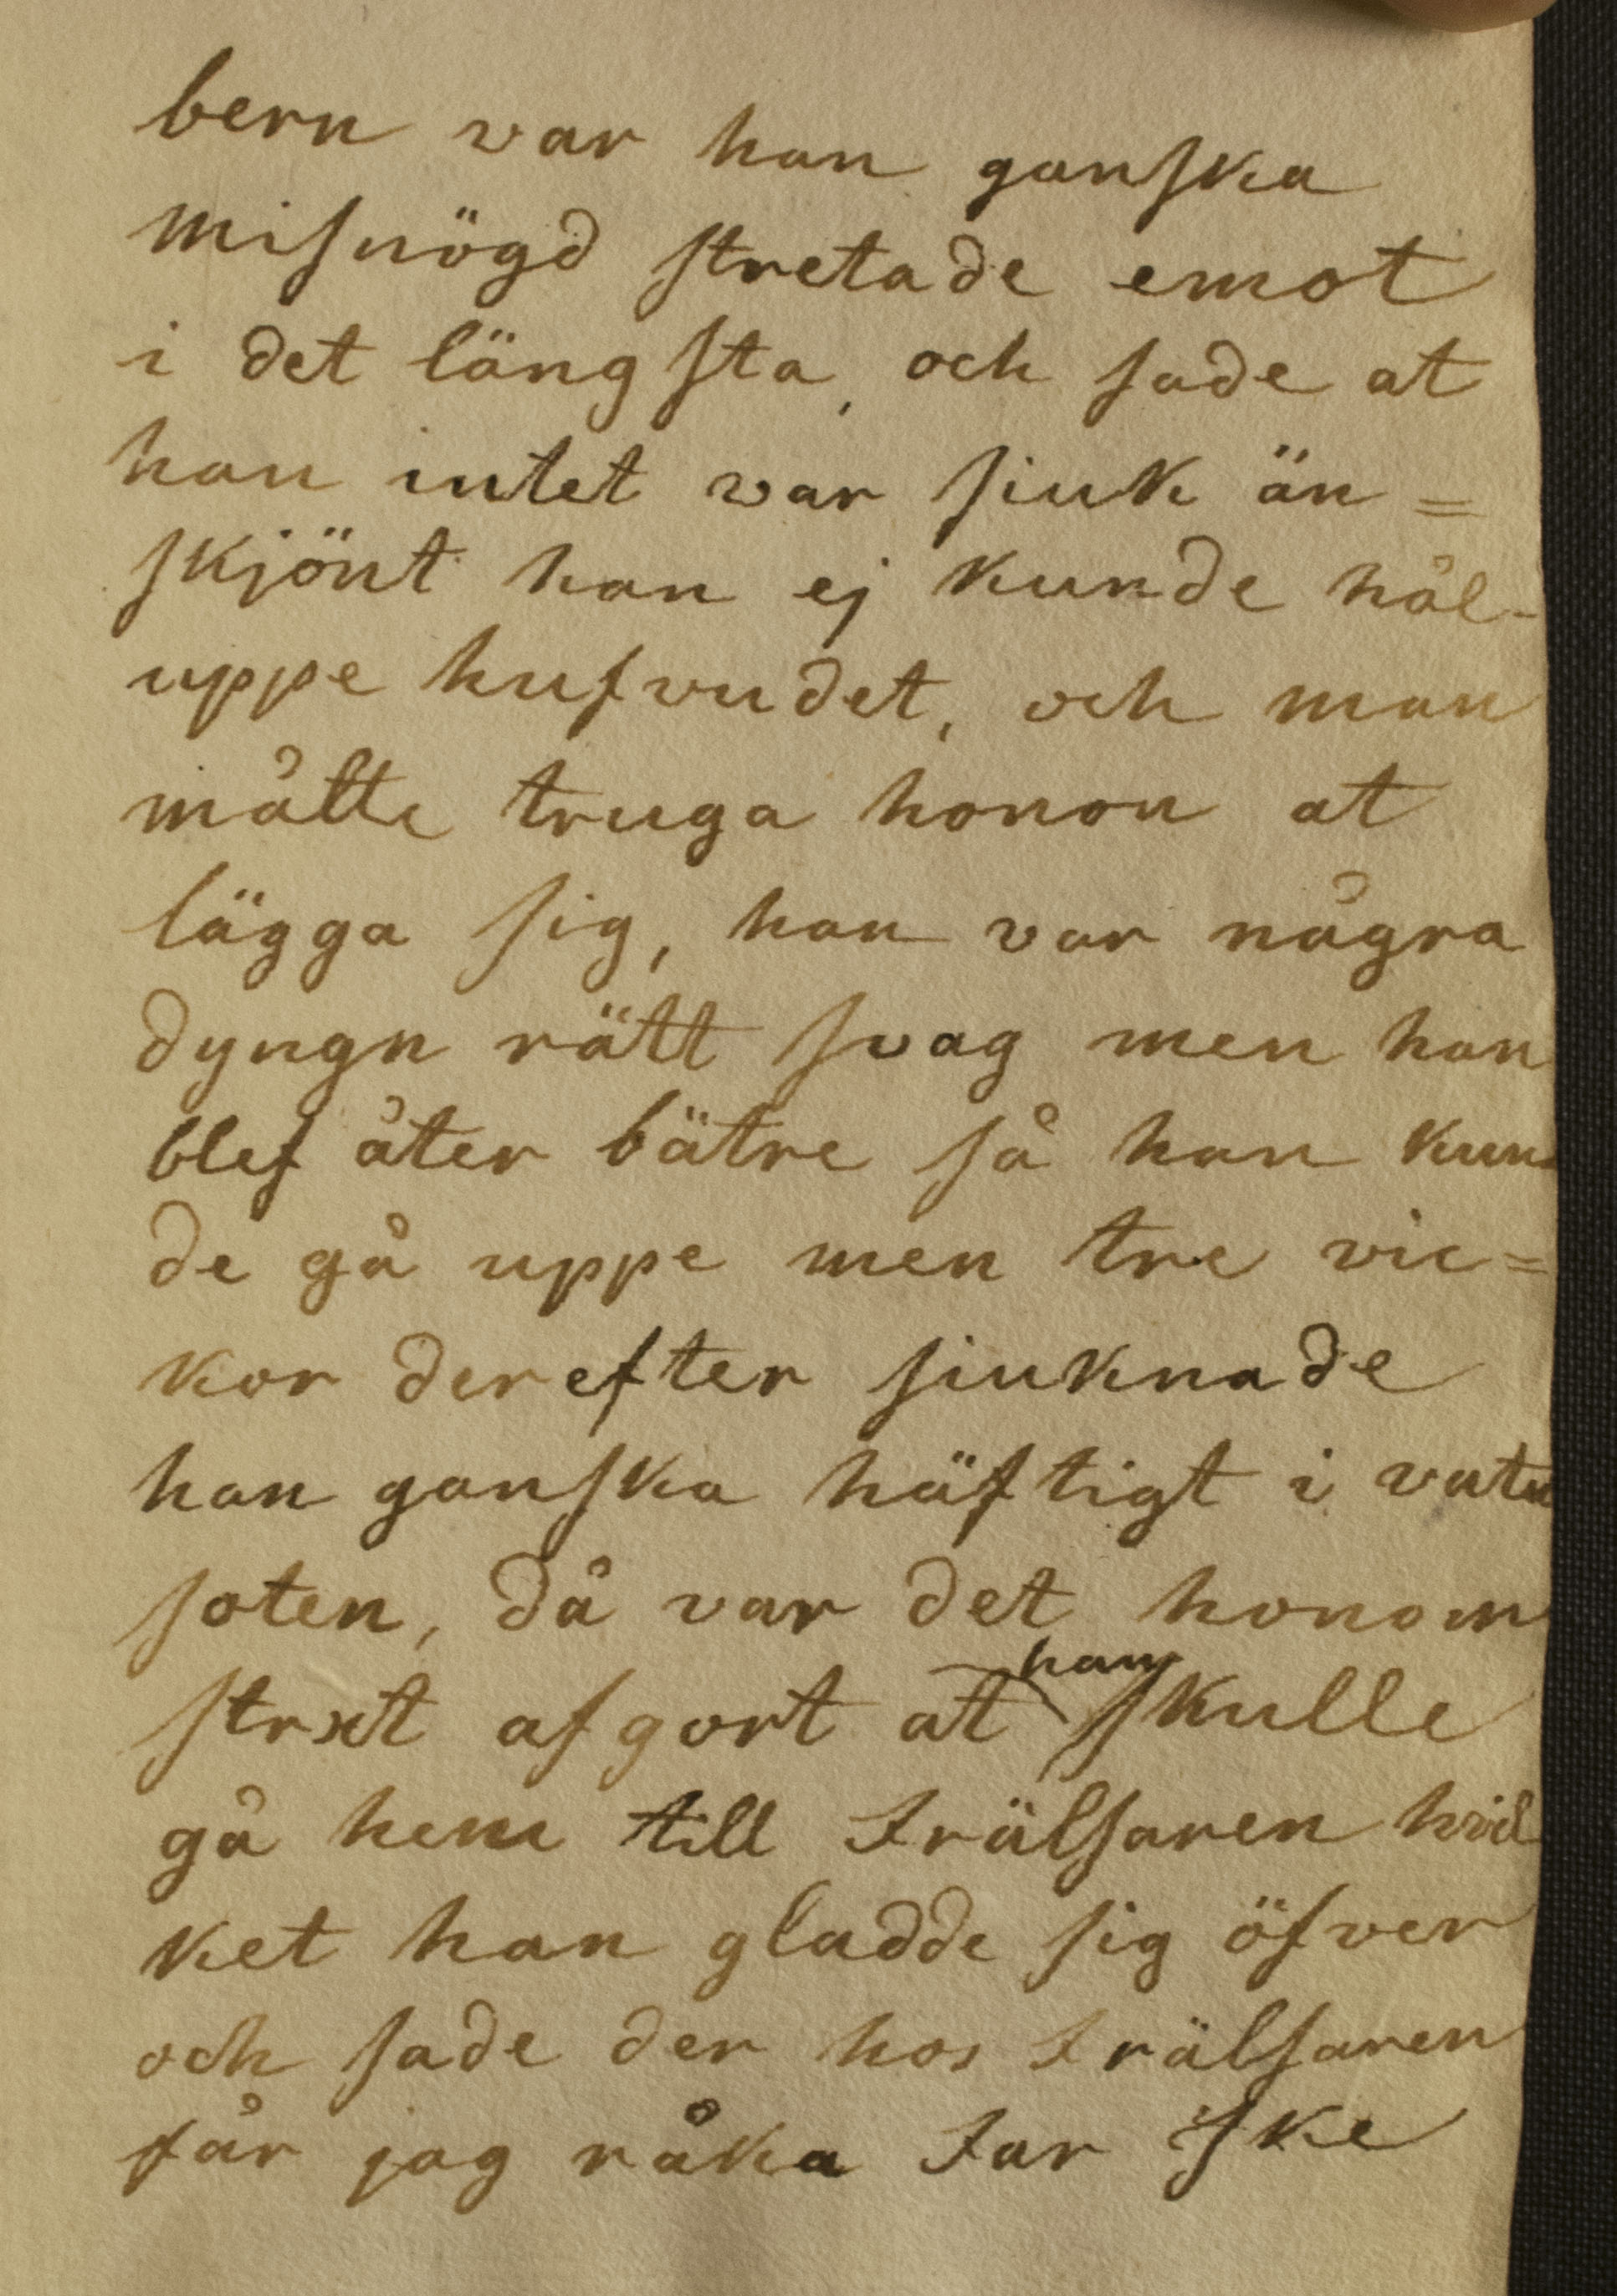 bern var han ganska
misnögd stretade emot
i det längsta, och sade at
han intet var siuk än=
skjönt han ej kunde hål-
uppe hufvudet, och man
måtte truga honon at
lägga sig, han var några
dyngn rätt svag men han
blef åter bätre så han kun
de gå uppe men tre vic=
kor derefter siuknade
han ganska häftigt i vatu
soten, då var det honom
strxt afgort at han skulle
gå hem till Frälsaren hvil
ket han gladde sig öfver
och sade der hos Frälsaren
får jag råka Far Ske